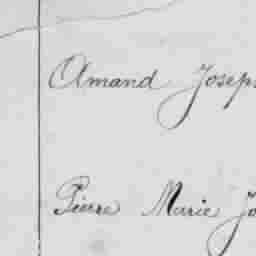 Amand Joseph
Pierre Marie Jo